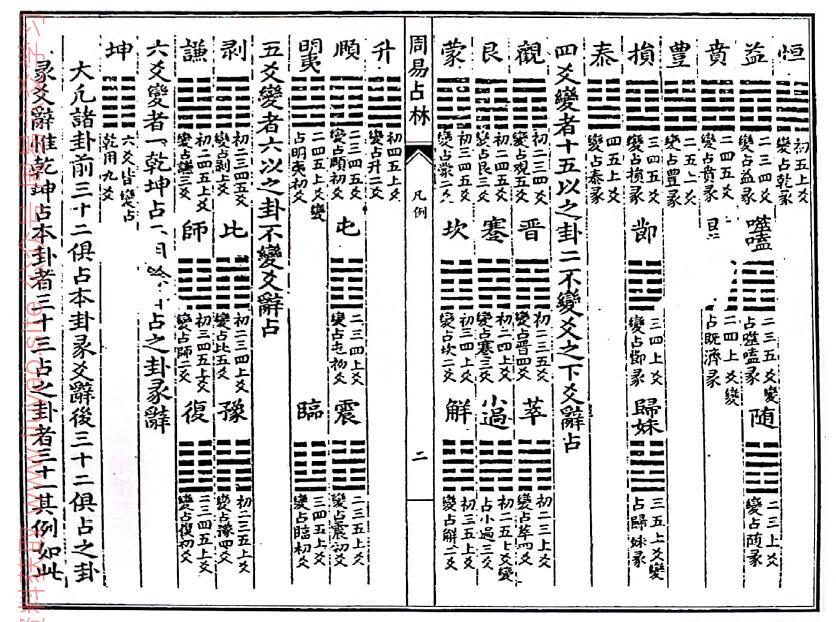 恒 初五上爻變占乾彖
益 二三四爻變占益彖 噬嗑 二三五爻變占噬嗑彖 随 二三上爻變占随彖
賁 二四五爻變占賁彖 二四上爻變占既濟彖
豐 二五上爻變占豐彖
損 三四五爻變占損彖 節 三四上爻變占節彖 歸妹 三五上爻變占歸妹彖
泰 四五上爻變占泰彖
四爻變者十五以之卦二不變爻之下爻辭占
觀 初二三四爻變占觀五爻 晋 初二三五爻變占晋四爻 萃 初二三上爻變占萃四爻
艮 初二四五爻變占艮三爻 蹇 初二四上爻變占蹇三爻 小過 初二五上爻變占小過三爻
蒙 初三四五爻變占蒙二爻 坎 初三四上爻變占坎二爻 解 初三五上爻變占解二爻
周易占林 凡例 二
升 初四五上爻變占升二爻
頤 二三四五爻變占頤初爻 屯 二三四上爻變占屯初爻 震 二三五上爻變占震初爻
明夷 二四五上爻變占明夷初爻 臨 三四五上爻變占臨初爻
五爻變者六以之卦不變爻辭占
剥 初二三四五爻變占剥上爻 比 初二三四上爻變占比五爻 豫 初二三五上爻變占豫四爻
謙 初二四五上爻變占謙三爻 師 初三四五上爻變占師二爻 復 二三四五上爻變占復初爻
六爻變者一乾坤占 占之卦彖辭
坤 六爻皆變占乾用九爻
大凡諸卦前三十二俱占本卦彖爻辭後三十二俱占之卦
彖爻辭惟乾坤占本卦者三十三占之卦者三十一其例如此